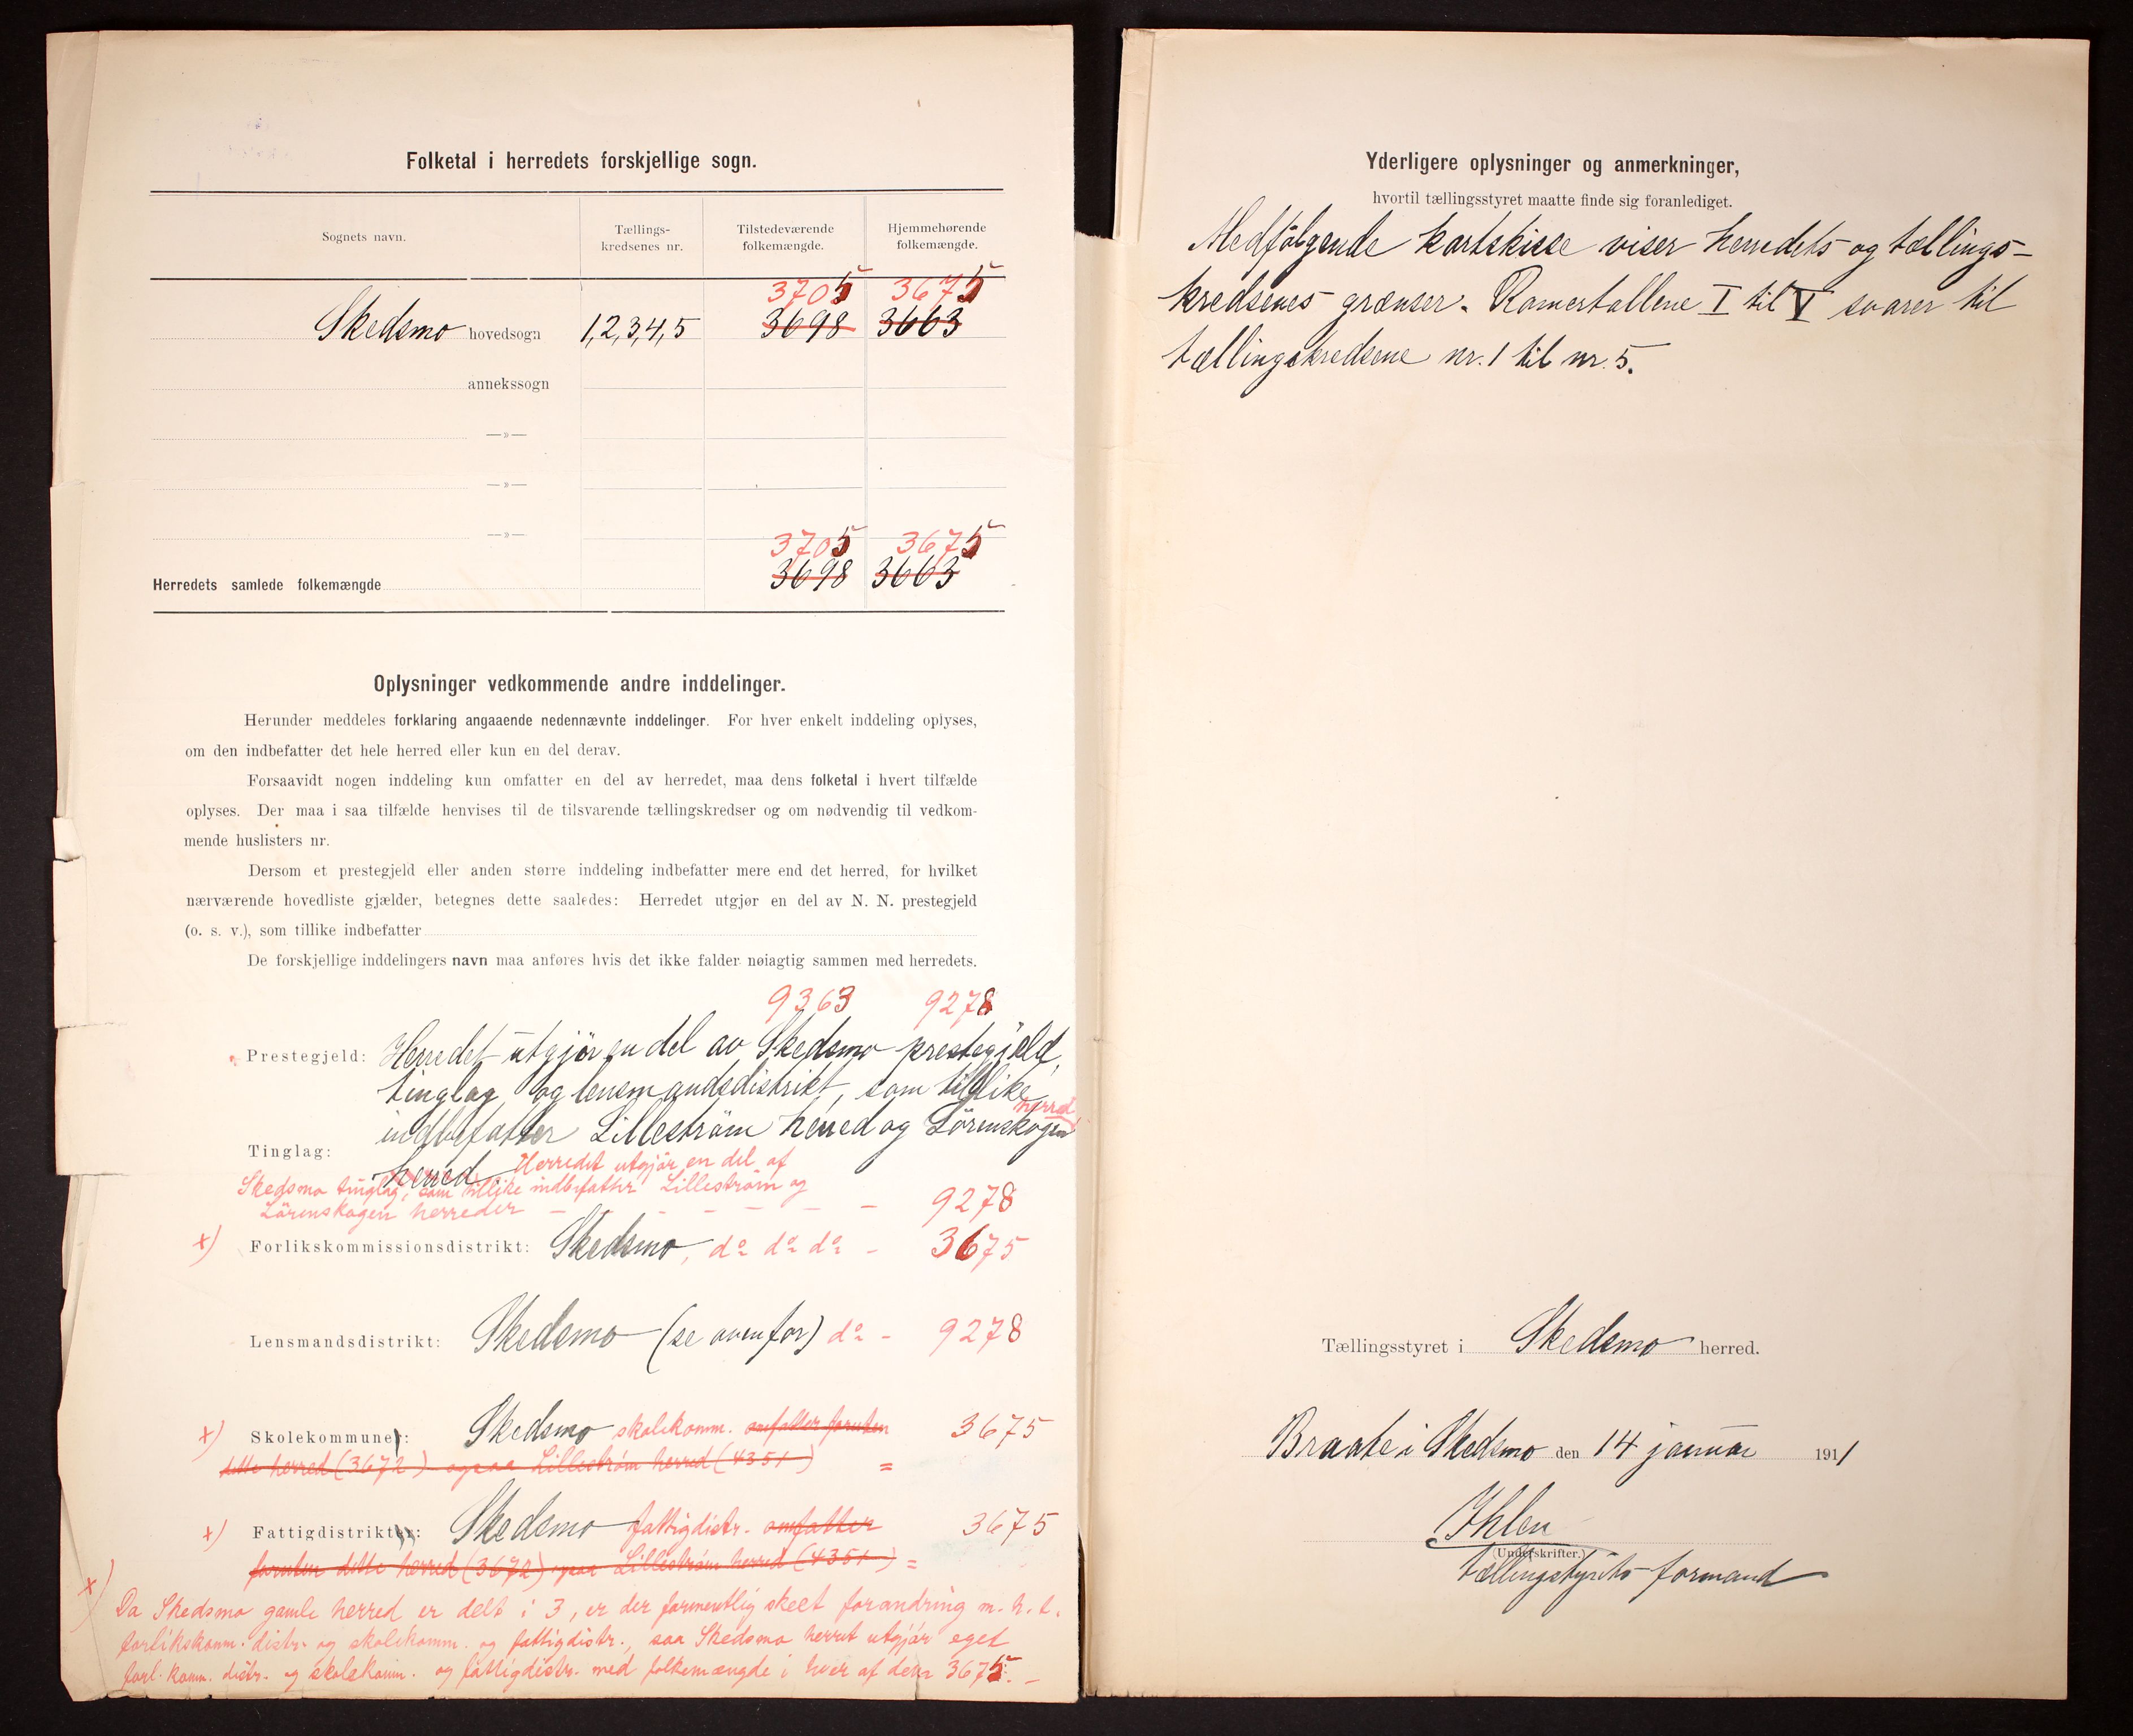 Folketal i herredets forskjellige sogn.
Sognets navn.
Tællings-
kredsenes nr.
Tilstedeværende
folkemængde.
Hjemmehørende
folkemængde.
3705 3675
Skedsmo hovedsogn 1,2,3,4,5 3698 3663
annekssogn
—»—
—»—
—»—
3705 3675
Herredets samlede folkemængde 3698 3663
Oplysninger vedkommende andre inddelinger.
Herunder meddeles forklaring angaaende nedennævnte inddelinger. For hver enkelt inddeling oplyses,
om den indbefatter det hele herred eller kun en del derav.
Forsaavidt nogen inddeling kun omfatter en del av herredet, maa dens folketal i hvert tilfælde
oplyses. Der maa i saa tilfælde henvises til de tilsvarende tællingskredser og om nødvendig til vedkom-
mende huslisters nr.
Dersom et prestegjeld eller anden større inddeling indbefatter mere end det herred, for hvilket
nærværende hovedliste gjælder, betegnes dette saaledes: Herredet utgjør en del av N. N. prestegjeld
(o. s. v.), som tillike indbefatter
De forskjellige inddelingers navn maa anføres hvis det ikke falder nøiagtig sammen med herredets.
9363 9278
Prestegjeld: Herredet utgjör en del av Skedsmo prestegjeld,
tinglag og lensmandsdistrikt, som tillike
herred
indbefatter Lilleström herred og Lörenskogen
Tinglag:
herred Herredet utgjör en del af
Skedsmo tinglag, som tillike indbefatter Lilleström og
Lörenskogen herreder – – – – – 9278
x) Forlikskommissionsdistrikt: Skedsmo, do do do – 3675
Lensmandsdistrikt: Skedsmo (se ovenfor) do – 9278
x) Skolekommuner: Skedsmo skolekomm. omfatter foruten 3675
dette herred (3672) ogsaa Lilleström herred (4351) =
x) Fattigdistrikter: Skedsmo fattigdistr. omfatter 3675
foruten dette herred (3672) ogsaa Lilleström herred (4351) =
x) Da Skedsmo gamle herred er delt i 3, er der formentlig skeet forandring m. h. t.
forlikskomm. distr. og skolekomm. og fattigdistr., saa Skedsmo herret utgjör eget
forl. komm. distr. og skolekomm. og fattigdistr. med folkemængde i hver af dem 3675. –
Yderligere oplysninger og anmerkninger,
hvortil tællingsstyret maatte finde sig foranlediget.
Medfölgende kartskisse viser herredets og tællings-
kredsenes grænser. Romertallene I til V svarer til
tællingskredsene nr. 1 til nr. 5.
Tællingsstyret i Skedsmo herred.
Braate i Skedsmo den 14 januar 1911
Ihlen
(Underskrifter.)
tællingstyrets formand